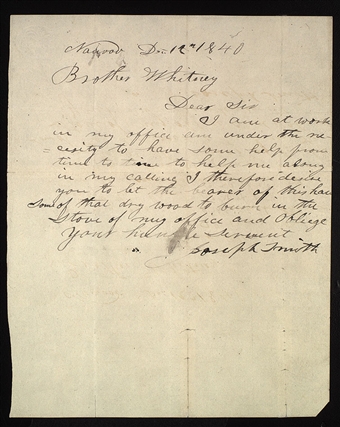 Nauvoo Dec 12th 1840
Brother Whitney
Dear Sir
I am at work
in my office am under the ne
=cesity to have some help from
time to time to help me along
in my calling I therefore desire
you to let the bearer of this have
some of that dry wood to burn in the
Stove of my office and Obliege
your humble servant
Joseph Smith